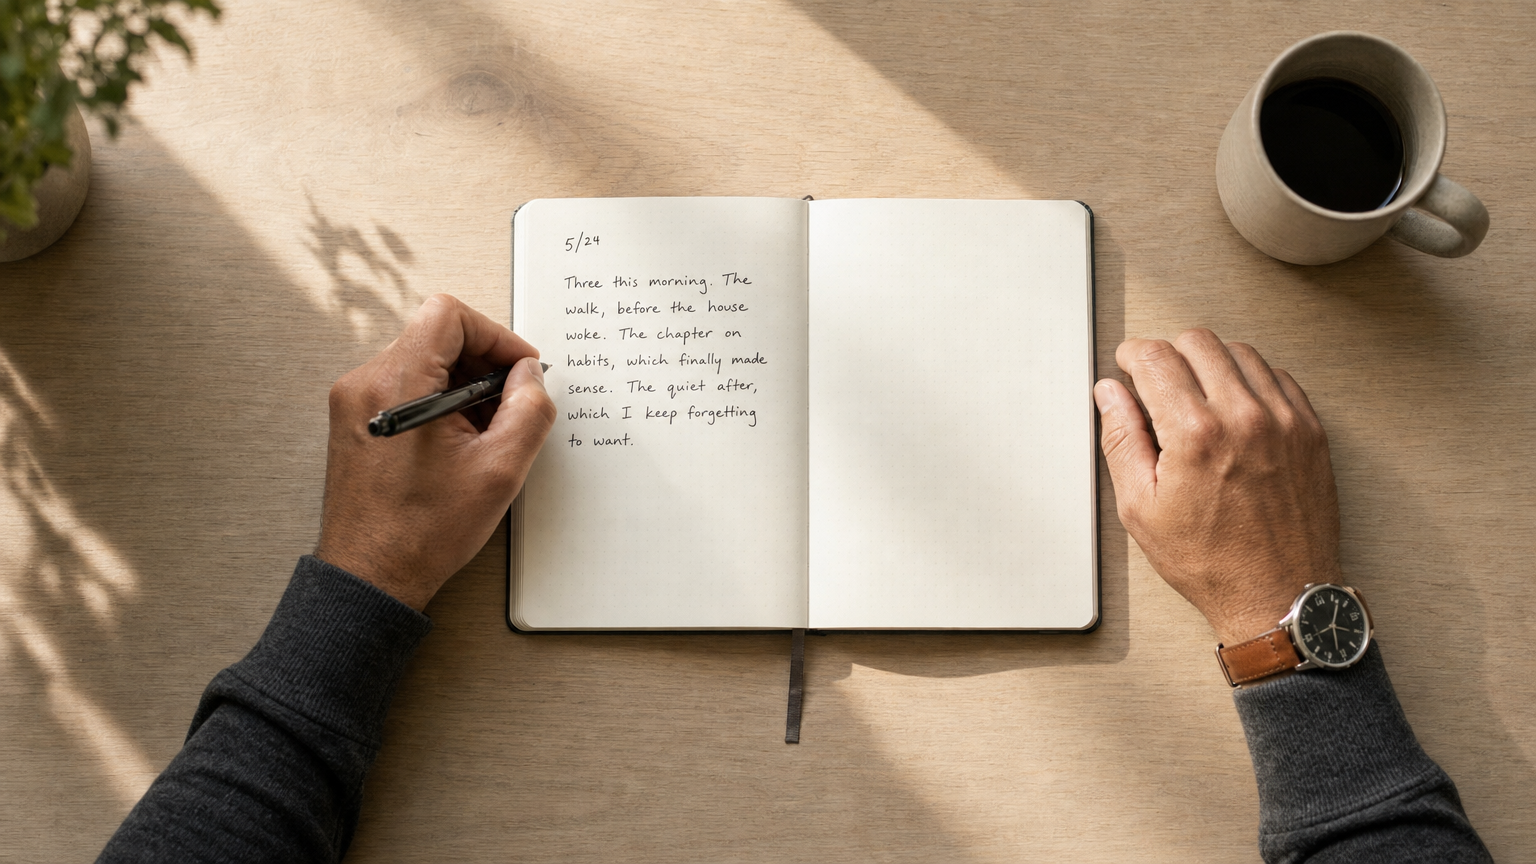 5/24
Three this morning. The
walk, before the house
woke. The chapter on
habits, which finally made
sense. The quiet after,
which I keep forgetting
to want.